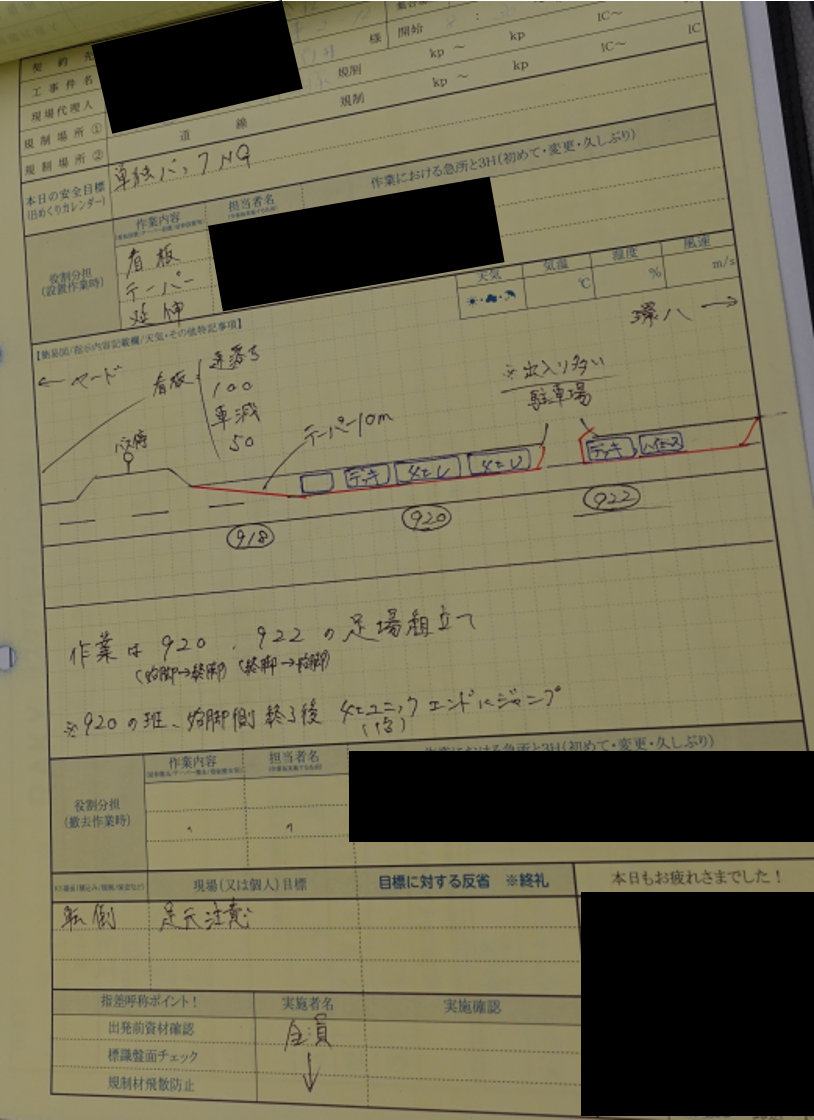 契約先
様
開始 :
工事件名
規制 kp ～ kp IC～ IC
現場代理人
規制 kp ～ kp IC～ IC
規制場所①
道 線
規制場所②
本日の安全目標
(日めくりカレンダー)
単独バックNG
作業における急所と3H(初めて・変更・久しぶり)
役割分担
(設置作業時)
作業内容 担当者名
看板
テーパー
延伸
天気 気温 湿度 風速
℃ % m/s
【簡易図/指示内容記載欄/天気・その他特記事項】
← ヤード
環八 →
看板
段落ち
100
車減
50
※出入り多い
駐車場
バス停
テーパー10m
デッキ
デッキ ハイエース
918 920 922
作業は920、922の足場組立て
(始脚→終脚) (終脚→始脚)
※920の班、始脚側終了後 4tユニック エンドにジャンプ
役割分担
(撤去作業時)
作業内容 担当者名
作業における急所と3H(初めて・変更・久しぶり)
現場(又は個人)目標 目標に対する反省 ※終礼 本日もお疲れさまでした！
転倒 足元注意
指差呼称ポイント！ 実施者名 実施確認
出発前資材確認 全員
標識盤面チェック ↓
規制材飛散防止